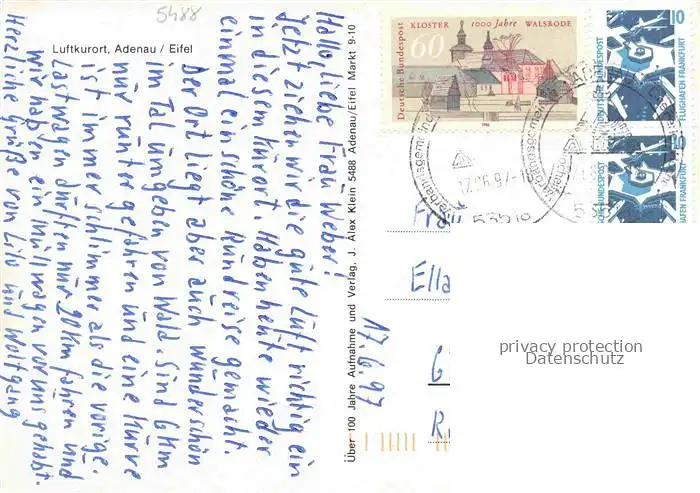 5488
Luftkurort, Adenau / Eifel
Hallo, liebe Frau Weber!
Jetzt ziehen wir die gute Luft richtig ein
in diesem Kurort. Haben heute wieder
einmal eine schöne Rundreise gemacht.
Der Ort liegt aber auch wunderschön
im Tal umgeben von Wald. Sind 6 km
nur runter gefahren und eine Kurve
ist immer schlimmer als die vorige.
Lastwagen dürften nur 20 km fahren und
wir haben ein Müllwagen vor uns gehabt.
Herzliche Grüße von Lilo und Wolfgang
Über 100 Jahre Aufnahme und Verlag, J. Alex Klein 5488 Adenau/Eifel Markt 9-10
17 6 97
KLOSTER 1000 Jahre WALSRODE
Deutsche Bundespost
60
1986
10
DEUTSCHE BUNDESPOST
FLUGHAFEN FRANKFURT
10
BUNDESPOST
HAFEN FRANKFURT
Verbandsgemeinde
53518
Frau
Ella
privacy protection
Datenschutz